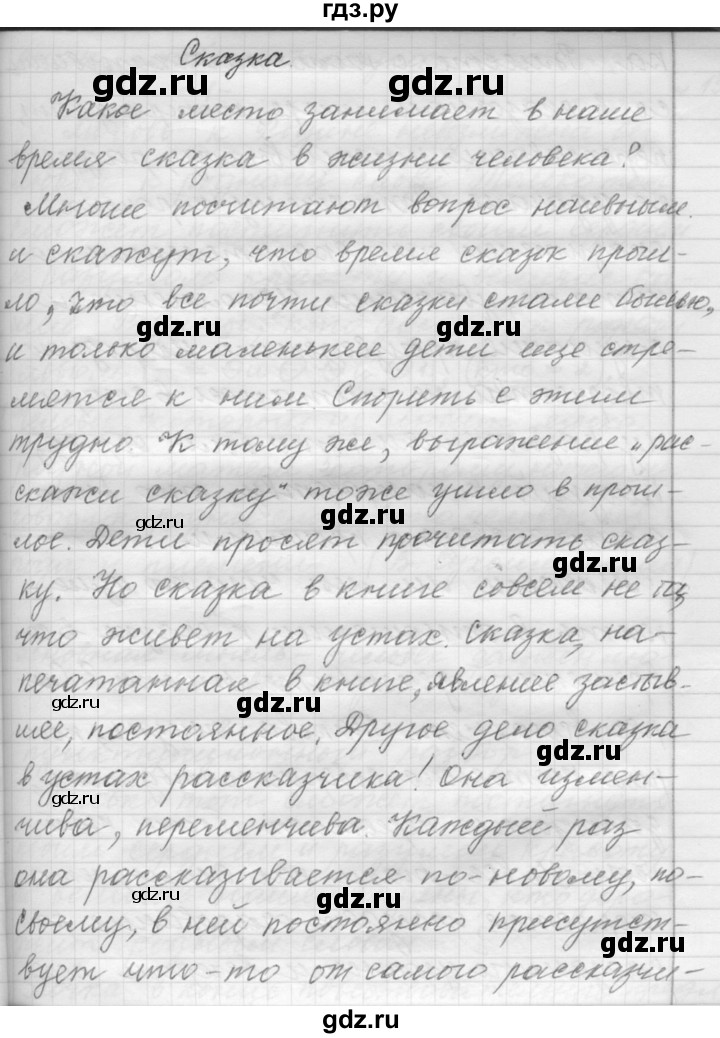 гдз.ру
Сказка.
gdz.ru
gdz.ru
Какое место занимает в наше
время сказка в жизни человека?
gdz.ru
gdz.ru
Многие посчитают вопрос наивным
и скажут, что время сказок прош-
ло, что все почти сказки стали былью,
gdz.ru
gdz.ru
и только маленькие дети еще стре-
мятся к ним. Спорить с этим
трудно. К тому же, выражение „рас-
скажи сказку“ тоже ушло в прош-
gdz.ru
gdz.ru
лое. Дети просят прочитать сказ-
gdz.ru
ку. Но сказка в книге совсем не та,
что живет на устах. Сказка, на-
печатанная в книге, явление застыв-
gdz.ru
gdz.ru
шее, постоянное. Другое дело сказка
gdz.ru
в устах рассказчика! Она измен-
gdz.ru
чива, переменчива. Каждый раз
она рассказывается по-новому, по-
gdz.ru
gdz.ru
своему, в ней постоянно присутст-
gdz.ru
вует что-то от самого рассказчи-
gdz.ru
gdz.ru